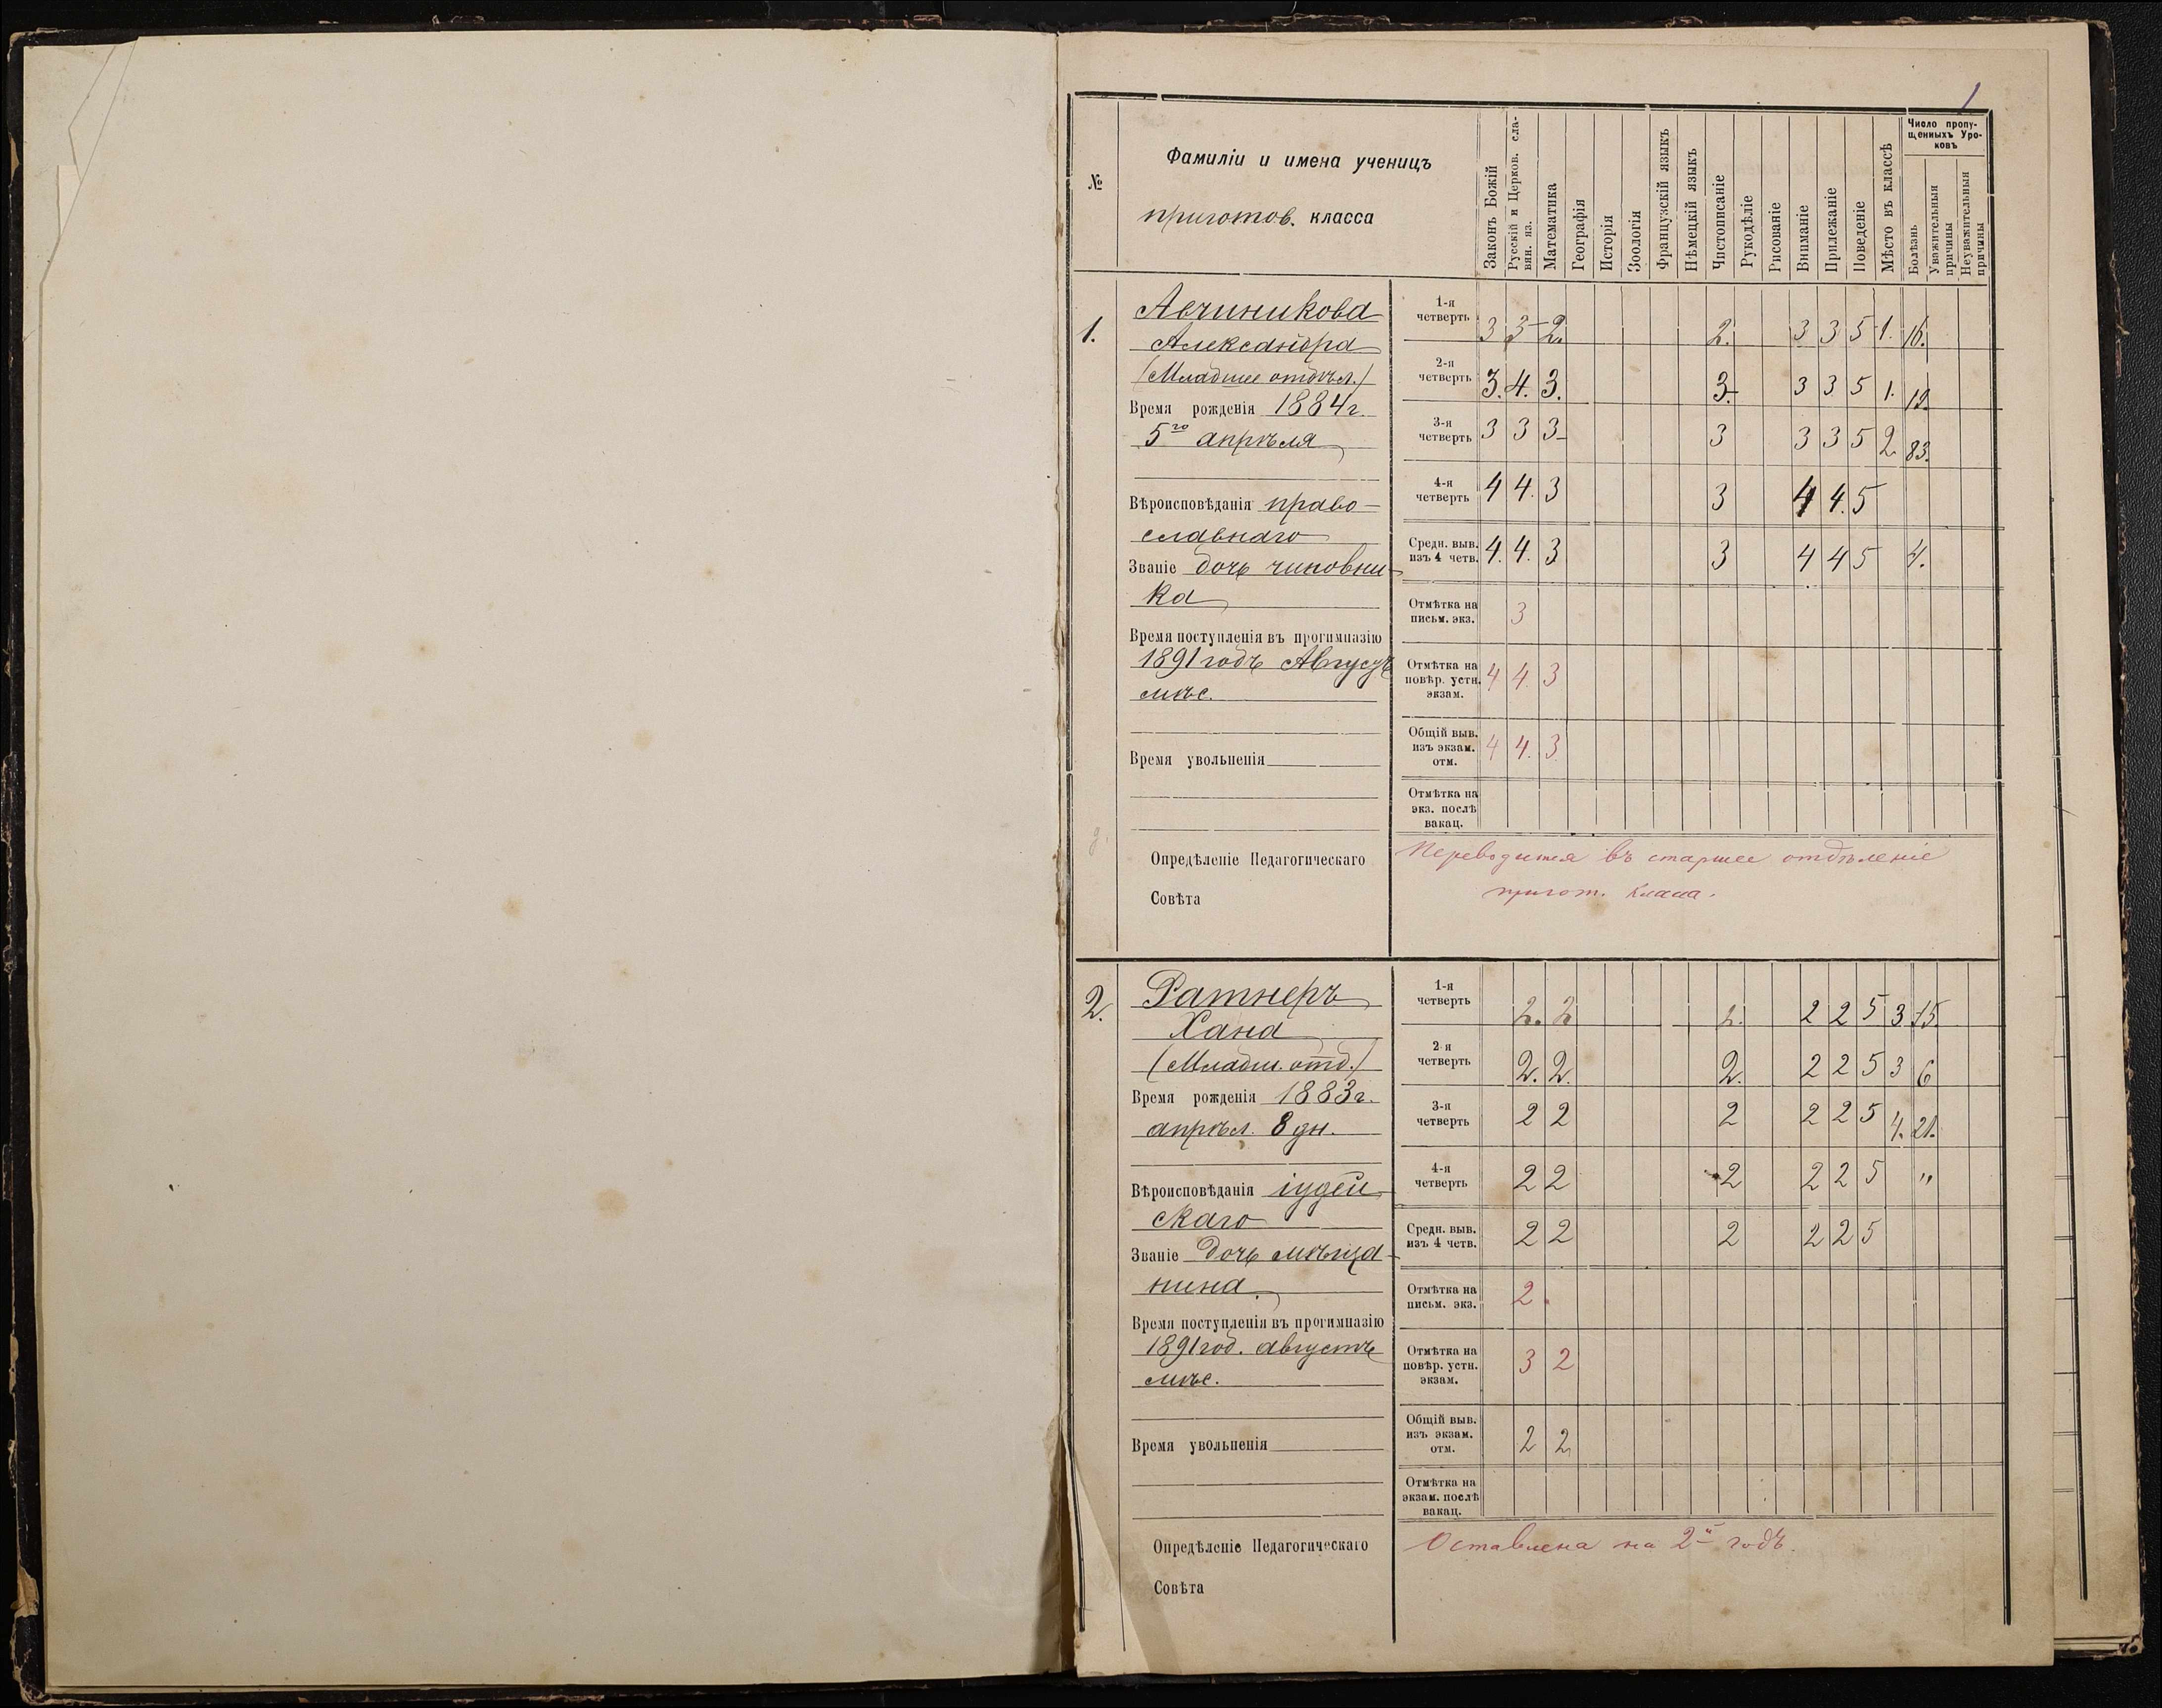 1
№
Фамиліи и имена ученицъ
приготов. класса
Законъ Божій
Русскій и Церков. сла-
вян. яз.
Математика
Географія
Исторія
Зоологія
Французскій языкъ
Нѣмецкій языкъ
Чистописаніе
Рукодѣліе
Рисованіе
Вниманіе
Прилежаніе
Поведеніе
Мѣсто въ классѣ
Число пропу-
щенныхъ Уро-
ковъ
Болѣзнь
Уважительныя
причины
Неуважительныя
причины
1.
Авчиникова
Александра
(Младшее отдѣл.)
Время рожденія 1884 г.
5го апрѣля
Вѣроисповѣданія право-
славнаго
Званіе дочь чиновни-
ка
Время поступленія въ прогимназію
1891 годъ Августъ
мѣс.
Время увольненія
Опредѣленіе Педагогическаго
Совѣта
1-я
четверть 3 3- 2. 2. 3 3 5 1. 16.
2-я
четверть 3. 4. 3. 3- 3 3 5 1. 12.
3-я
четверть 3 3 3- 3 3 3 5 2. 83.
4-я
четверть 4 4. 3 3 4 4. 5
Средн. выв.
изъ 4 четв. 4. 4. 3 3 4 4 5 4.
Отмѣтка на
письм. экз. 3
Отмѣтка на
повѣр. устн.
экзам. 4 4. 3
Общій выв.
изъ экзам.
отм. 4 4. 3.
Отмѣтка на
экз. послѣ
вакац.
Переводится въ старшее отдѣленіе
пригот. класса.
2.
Ратнеръ
Хана
(Младш. отд.)
Время рожденія 1883 г.
апрѣл. 8 дн.
Вѣроисповѣданія іудей-
скаго
Званіе Дочь мѣща-
нина.
Время поступленія въ прогимназію
1891 год. августъ
мѣс.
Время увольненія
Опредѣленіе Педагогическаго
Совѣта
1-я
четверть 2. 2 2. 2 2 5 3 15.
2 я
четверть 2. 2. 2. 2 2 5 3 6
3-я
четверть 2 2 2 2 2 5 4. 21.
4-я
четверть 2 2 2 2 2 5 "
Средн. выв.
изъ 4 четв. 2 2 2 2 2 5
Отмѣтка на
письм. экз. 2.
Отмѣтка на
повѣр. устн.
экзам. 3 2
Общій выв.
изъ экзам.
отм. 2 2
Отмѣтка на
экзам. послѣ
вакац.
Оставлена на 2й годъ.